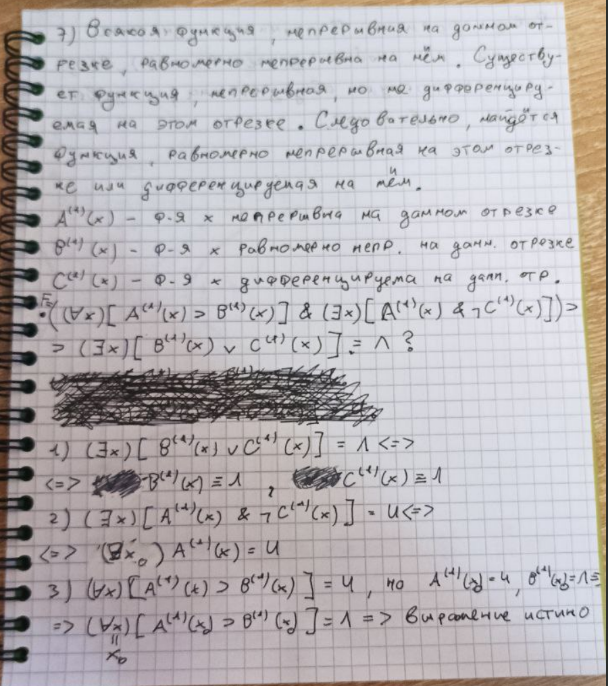 7) Всякая функция, непрерывная на данном от-
резке, равномерно непрерывна на нём. Существу-
ет функция, непрерывная, но не дифференциру-
емая на этом отрезке. Следовательно, найдётся
функция, равномерно непрерывная на этом отрез-
ке или дифференцируемая на нём.
A⁽¹⁾(x) – ф-я x непрерывна на данном отрезке
B⁽¹⁾(x) – ф-я x равномерно непр. на данн. отрезке
C⁽¹⁾(x) – ф-я x дифференцируема на данн. отр.
((∀x)[A⁽¹⁾(x) ⊃ B⁽¹⁾(x)] & (∃x)[A⁽¹⁾(x) & ¬C⁽¹⁾(x)]) ⊃
⊃ (∃x)[B⁽¹⁾(x) ∨ C⁽¹⁾(x)] = Л ?
1) (∃x)[B⁽¹⁾(x) ∨ C⁽¹⁾(x)] = Л <=>
<=> B⁽¹⁾(x) ≡ Л, C⁽¹⁾(x) ≡ Л
2) (∃x)[A⁽¹⁾(x) & ¬C⁽¹⁾(x)] = И <=>
<=> (∃x₀) A⁽¹⁾(x) = И
3) (∀x)[A⁽¹⁾(x) ⊃ B⁽¹⁾(x)] = И, но A⁽¹⁾(x₀) = И, B⁽¹⁾(x₀) = Л =
=> (∀x)[A⁽¹⁾(x₀) ⊃ B⁽¹⁾(x₀)] = Л => выражение истино
||
x₀